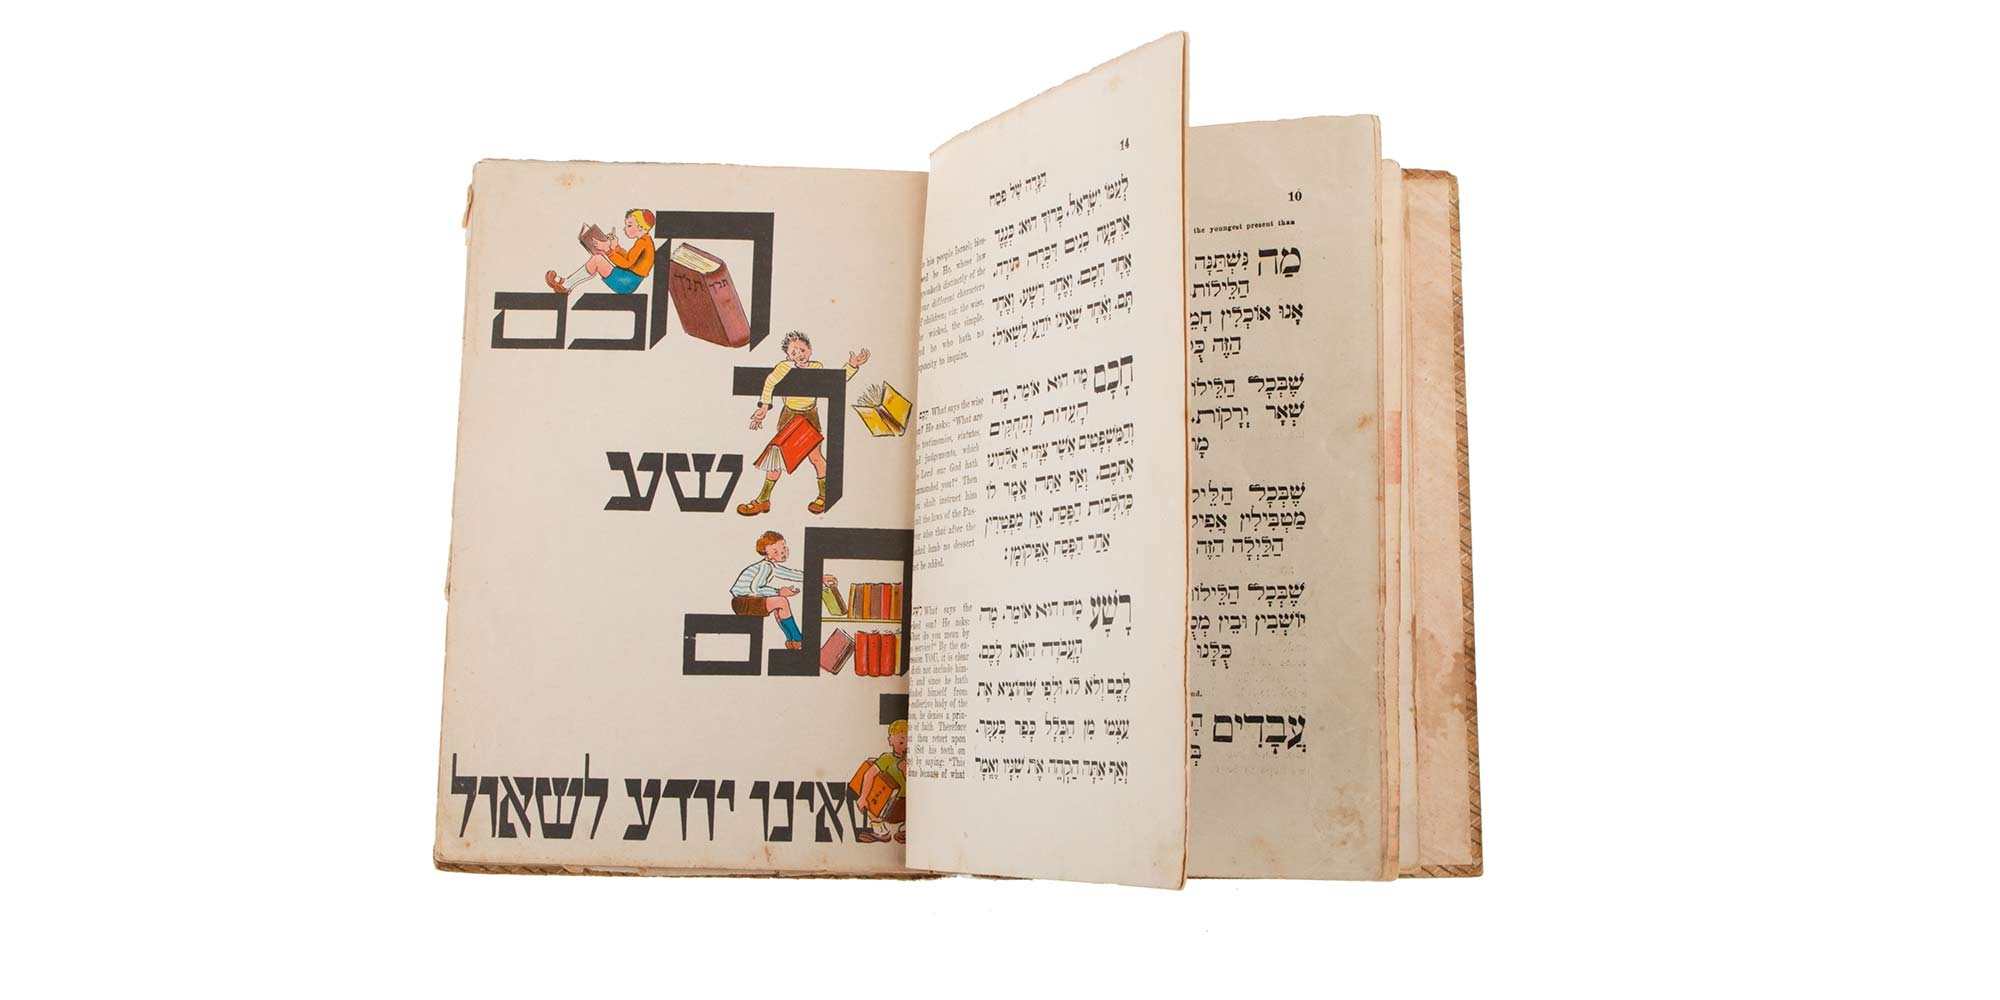 חכם
תנ״ך
תנך
רשע
תם
שאינו יודע לשאול
14
הַגָּדָה שֶׁל פֶּסַח
לְעַמּוֹ יִשְׂרָאֵל. בָּרוּךְ הוּא: כְּנֶגֶד
אַרְבָּעָה בָנִים דִּבְּרָה תוֹרָה.
אֶחָד חָכָם. וְאֶחָד רָשָׁע. וְאֶחָד
תָּם. וְאֶחָד שֶׁאֵינוֹ יוֹדֵעַ לִשְׁאוֹל:
חָכָם מָה הוּא אוֹמֵר. מָה
הָעֵדוֹת וְהַחֻקִּים
וְהַמִּשְׁפָּטִים אֲשֶׁר צִוָּה יְיָ אֱלֹהֵינוּ
אֶתְכֶם. וְאַף אַתָּה אֱמָר לוֹ
כְּהִלְכוֹת הַפֶּסַח. אֵין מַפְטִירִין
אַחַר הַפֶּסַח אֲפִיקוֹמָן:
רָשָׁע מָה הוּא אוֹמֵר. מָה
הָעֲבֹדָה הַזֹּאת לָכֶם.
לָכֶם וְלֹא לוֹ. וּלְפִי שֶׁהוֹצִיא אֶת
עַצְמוֹ מִן הַכְּלָל כָּפַר בָּעִקָּר.
וְאַף אַתָּה הַקְהֵה אֶת שִׁנָּיו וֶאֱמָר
his people Israel; bles-
be He, whose law
distinctly of the
different characters
children; viz: the wise,
wicked, the simple,
he who hath no
to inquire.
חָכָם What says the wise
He asks: "What are
testimonies, statutes,
judgements, which
Lord our God hath
you?" Then
shalt instruct him
all the laws of the Pas-
also that after the
lamb no dessert
be added.
רָשָׁע What says the
son? He asks:
What do you mean by
service?" By the ex-
YOU, it is clear
doth not include him-
and since he hath
himself from
collective body of the
he denies a prin-
of faith. Therefore
thou retort upon
(Set his teeth on
by saying: "This
because of what
10
the youngest present than
מַה נִּשְׁתַּנָּה
הַלֵּילוֹת.
אָנוּ אוֹכְלִין
הַזֶּה
שֶׁבְּכָל
שְׁאָר יְרָקוֹת.
שֶׁבְּכָל
מַטְבִּילִין
הַלַּיְלָה הַזֶּה
שֶׁבְּכָל
יוֹשְׁבִין וּבֵין
כֻּלָּנוּ
עֲבָדִים